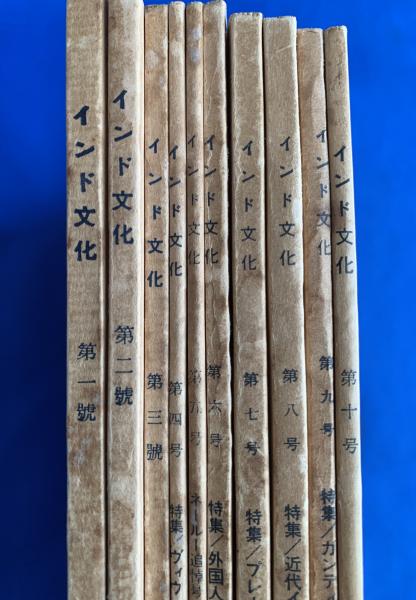 インド文化 第一號
インド文化 第二號
インド文化 第三號
インド文化 第四号 特集/ヴィヴ
インド文化 第五号 ネール追悼号
インド文化 第六号 特集/外国人
インド文化 第七号 特集/プレ
インド文化 第八号 特集/近代イ
インド文化 第九号 特集/ガンディ
インド文化 第十号